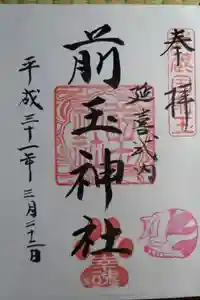 奉拝
延喜式内
前玉神社
平成三十一年三月二十二日